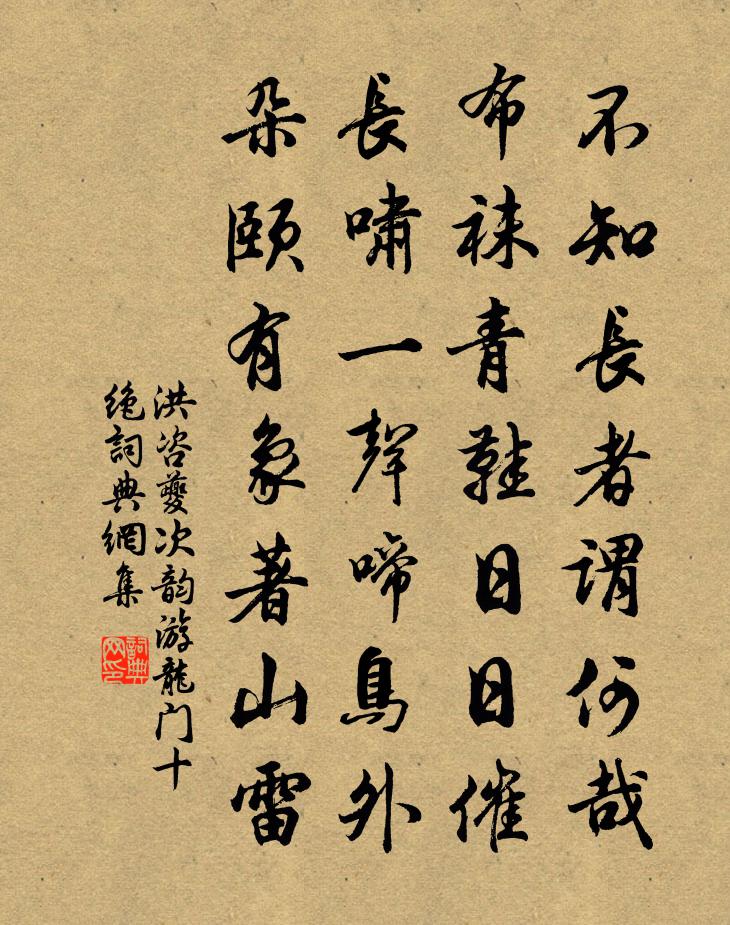 不知長者謂何哉
布袜青鞋日日催
長嘯一聲啼鳥外
朵頤有象著山雷
洪咨夔次韵游龍门十
绝詞典網集
詞典网印